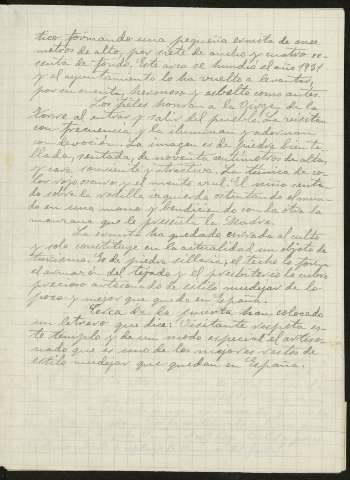 tico formando una pequeña ermita de once
metros de alto, por siete de ancho y cuatro se-
senta de fondo. Este arco se hundió el año 1931
y el ayuntamiento lo ha vuelto a levantar,
por su cuenta, hermoso y esbelto como antes.
Los fieles honran a la Virgen de la
Torre al entrar y salir del pueblo. La visitan
con frecuencia y la iluminan y adornan
con devoción. La imagen es de piedra bien ta-
llada, sentada, de noventa centímetros de altas,
y cara sonriente y atractiva. La túnica de co-
lor rojo oscuro y el manto azul. El niño senta-
do sobre la rodilla izquierda ostentando el mun-
do en una mano y bendiciendo con la otra la
manzana que le presenta la Madre.
La ermita ha quedado cerrada al culto
y solo constituye en la actualidad un objeto de
turismo. Es de piedra sillería; el techo lo forma
el armazón del tejado y el presbiterio lo cubre
precioso artesonado de estilo mudejar de lo
poco y mejor que queda en España.
Cerca de la puerta han colocado
un letrero que dice: Visitante respeta es-
te templo y de un modo especial el arteso-
nado que es uno de los mejores restos de
estilo mudejar que quedan en España.